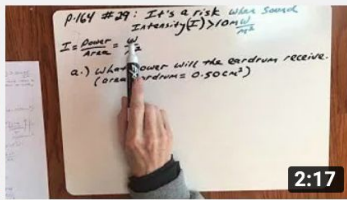 P.164 #29: It's a risk when sound
Intensity(I) > 10 mW/m²
I = Power/Area = W/m²
a.) What power will the eardrum receive.
(area eardrum = 0.50cm²)
2:17